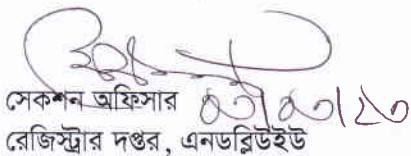 সেকশন অফিসার
রেজিস্ট্রার দপ্তর, এনডব্লিউইউ